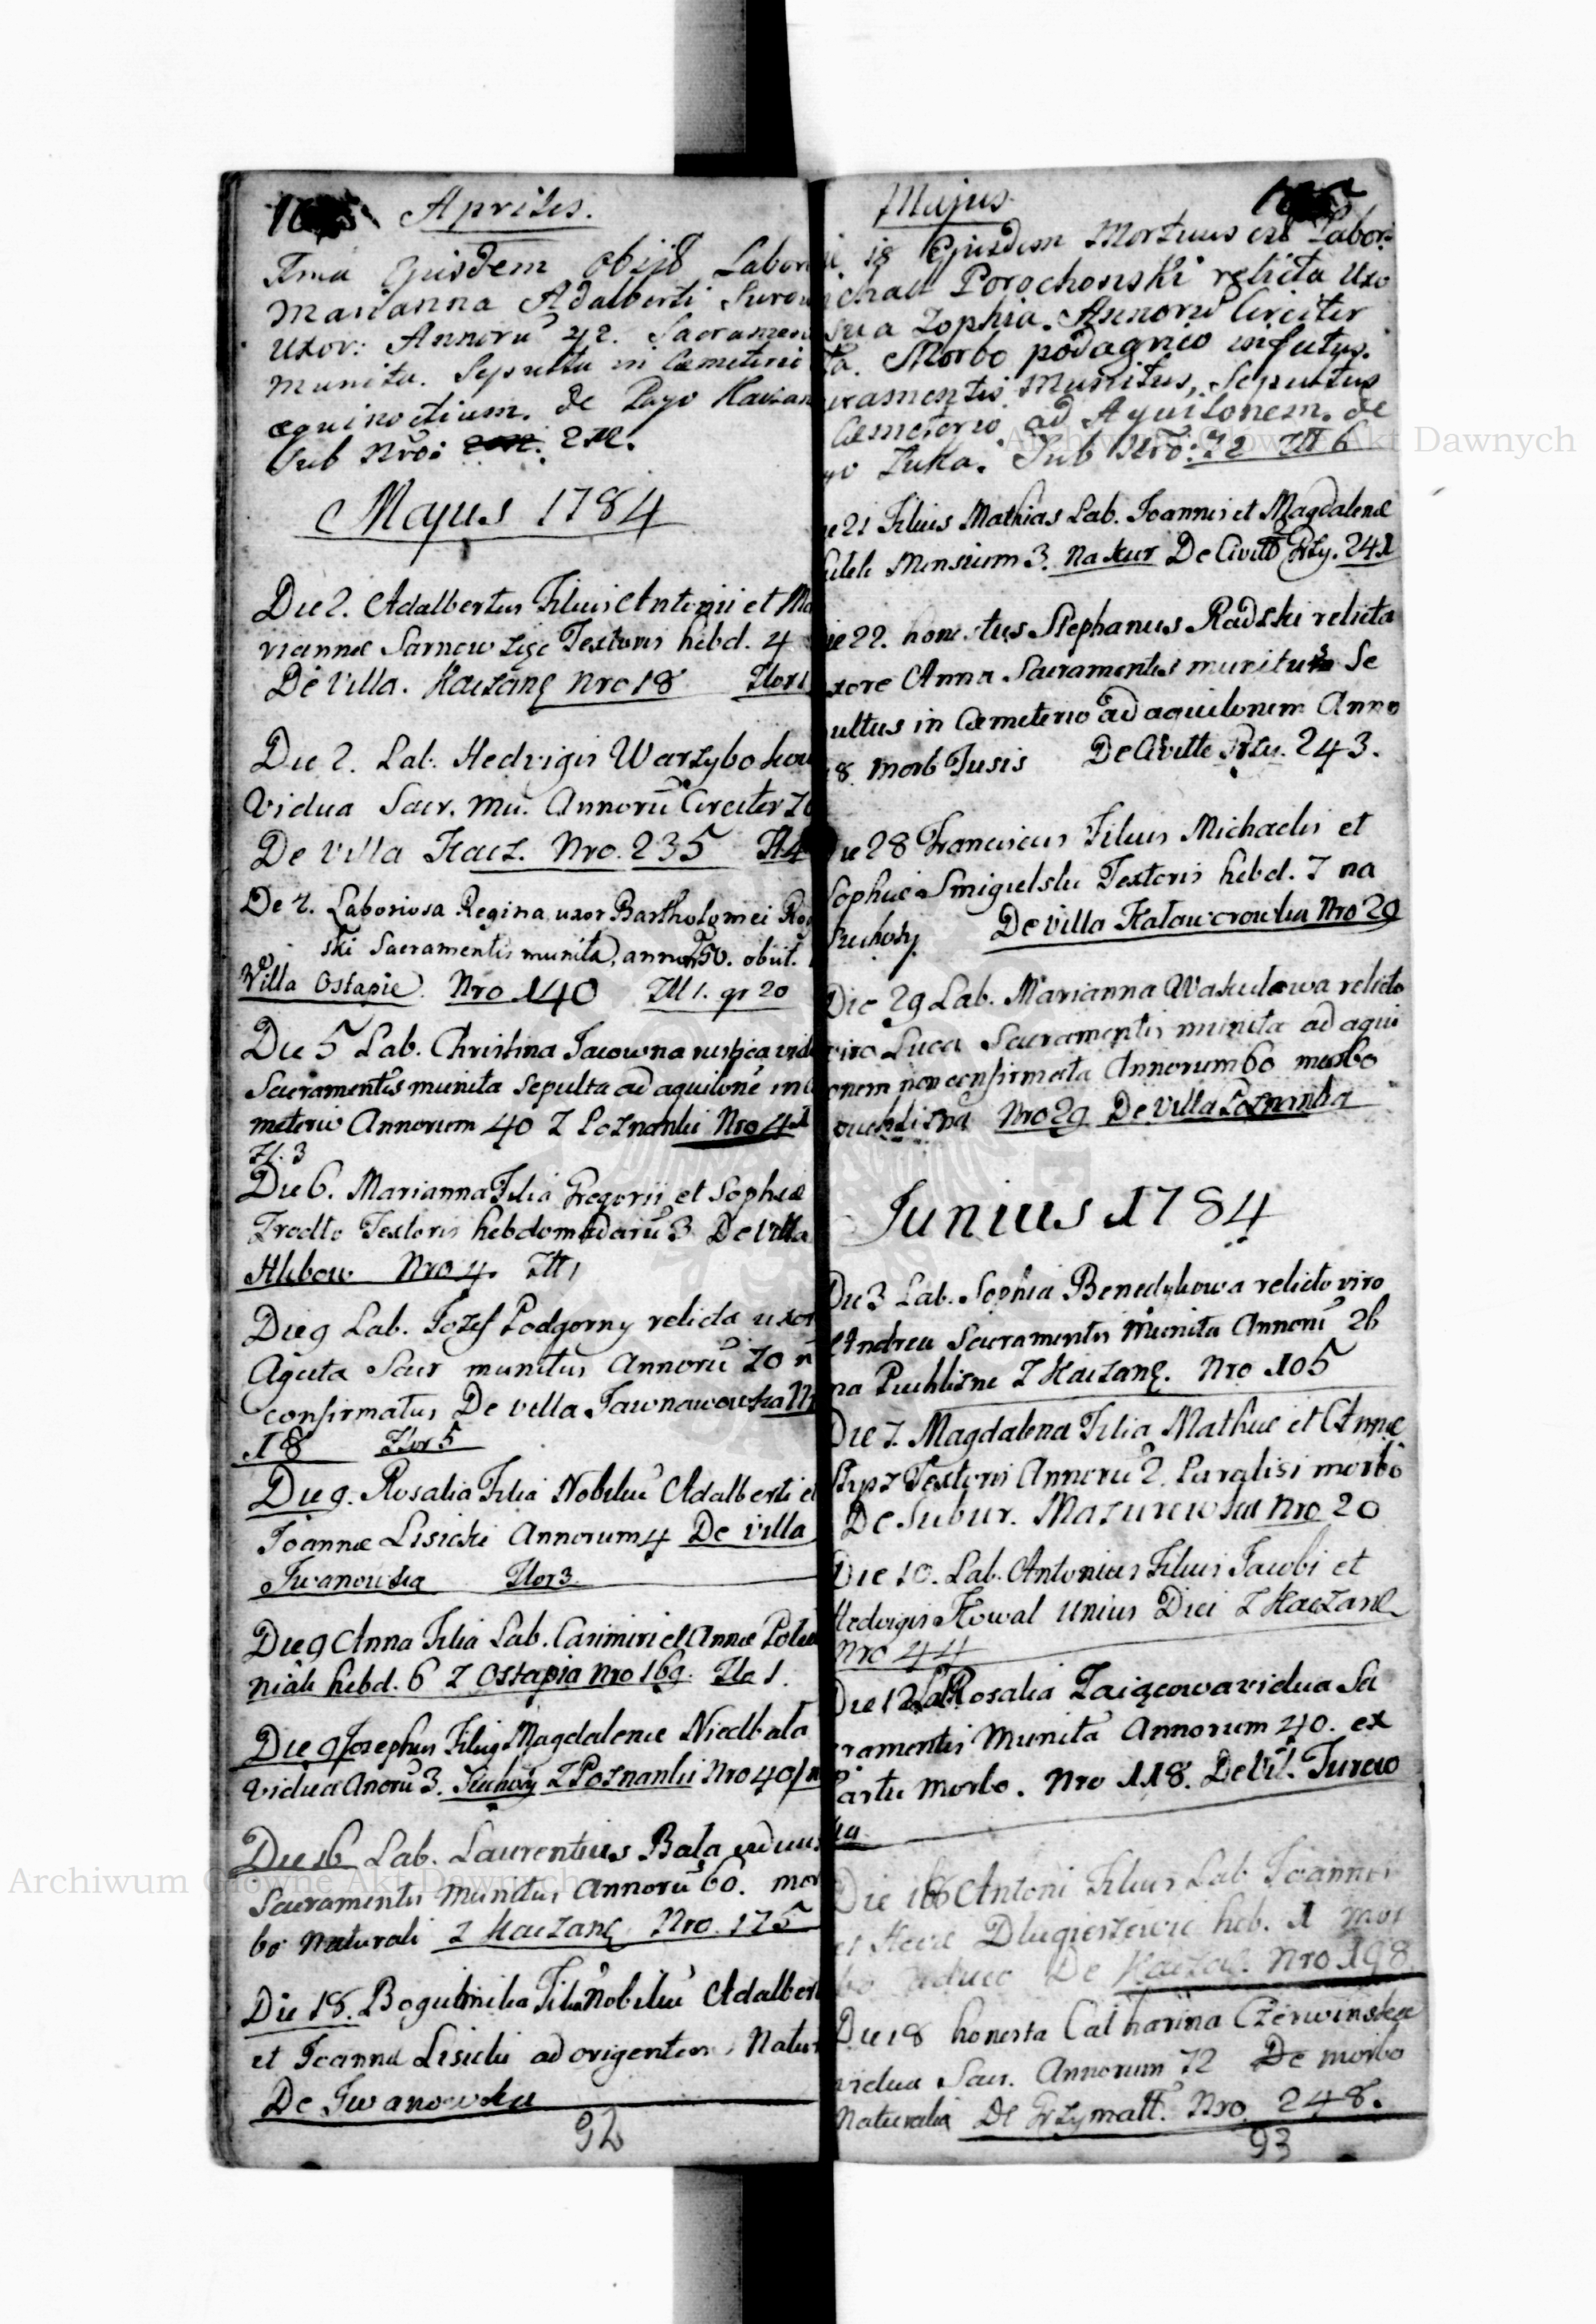 Aprilis.
Ima Ejusdem obijt Labori
Marianna Adalberti Surow
Uxor: Annoru 42. Sacramen
munita. Sepulta in Cæmeterio
æquinoctium. de Pago Kaczan
Sub Nro:
Majus 1784
Die 2. Adalbertus Filius Antonii et Ma
riannæ Sarnow Textoris hebd. 4
De Villa. Kaczanę Nro 18 Zlor 1
Die 2. Lab. Hedvigis Warzybokow
Vidua Sacr. Mu. Annorū Circiter 70
De villa Kacz. Nro. 235 Zł 4
De 2. Laboriosa Regina uxor Bartholomei Ro
ski Sacramentis munita, annor 50. obiit.
Villa Ostapie. Nro 140 Zll 1. gr 20
Die 5 Lab. Christina Jacowna rustica vid
Sacramentis munita sepulta ad aquilonē in
meterio Annorum 40 Z Poznanki Nro 41
Zl. 3
Die 6. Marianna Filia Gregorii et Sophiæ
Textoris hebdomadarū 3 De Villa
Hlibow Nro 4. Zll 1
Die 9 Lab. Jozef Podgorny relicta uxor
Agata Sacr munitus Annorū 70 n
confirmatus De villa
18 Zlor 5
Die 9. Rosalia Filia Nobiliū Adalberti et
Joannæ Lisicki Annorum 4 De villa
Iwanowka Zlor 3
Die 9 Anna Filia Lab. Casimiri et Annæ
niak hebd. 6 Z Ostapia Nro 169. Zło 1.
Die 9 Josephus Filius Magdalenæ Niedbala
Vidua Anorū 3. Suchoty Z Poznanki Nro 40
Die 16 Lab. Laurentius Bala viduus
Sacramentis Munitus Annorū 60. mor
bo Naturali Z Kaczanę Nro. 175
Die 18. Bogumila Filia Nobiliū Adalber
et Joannæ Lisicki ad origentem Natur
De Iwanowka
92
Majus.
18 Ejusdem Mortuus est Labori
ichael Porochonski relicta Uxo
sua Zophia. Annorū Circiter
Morbo podagrico infectus.
cramentis Munitus, Sepultus
Cæmeterio ad Aquilonem. de
go Luka. Sub Nro: 72 Zll 6
e 21 Filius Mathias Lab. Joannis et Magdalenæ
Mensium 3. Na kur De Civitt Grzy. 241
ie 22. honestus Stephanus Radski relicta
xore Anna Sacramentis munitus Se
ultus in Cæmeterio ad aquilonem Anno
8. morb Tusis De Civitte Grzy. 243.
Die 28 Franciscus Filius Michaelis et
Sophiæ Smigielski Textoris hebd. 7 na
Suchoty De villa Kałaurowka Nro 29
Die 29 Lab. Marianna Wakulowa relicto
viro Luca Sacramentis munita ad aqui
onem non confirmata Annorum 60 morbo
Nro 29 De villa Poznanka
Junius 1784
Die 3 Lab. Sophia Benedykowa relicto viro
Andrea Sacramentis Munita Annorū 26
na Puchlisne Z Kaczanę. Nro 105
Die 7. Magdalena Filia Mathiæ et Annæ
Textoris Annorū 2. Paralisi morbo
De Subur. Mazurowka Nro 20
Die 10. Lab. Antonius Filius Jacobi et
Hedvigis Kowal Unius Diei Z Kaczanę
Nro 44
Die 12 Lab Rosalia Zaięcowa vidua Sa
cramentis Munita Annorum 40. ex
Partu Morbo. Nro 118. De Vil. Turow
ka
Die 16 Antoni Filius Lab Joannis
et Długieszewic heb. 1 mor
bo De Kaczan. Nro 198
Die 18 honesta Catharina Czerwinska
vidua Sacr. Annorum 72 De morbo
Naturalia De Grzymatt. Nro. 248.
93
Archiwum Główne Akt Dawnych
Archiwum Główne Akt Dawnych